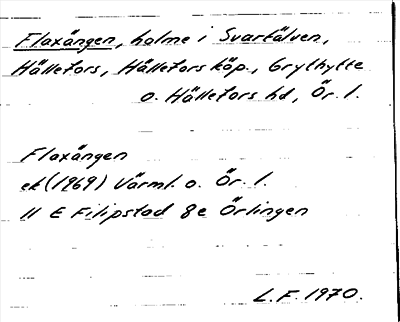 Flaxängen, holme i Svartälven,
Hällefors, Hällefors köp., Grythytte
o. Hällefors hd, Ör. l.
Flaxängen
ek (1969) Värml. o. Ör. l.
11 E Filipstad 8e Örlingen
L.F. 1970.